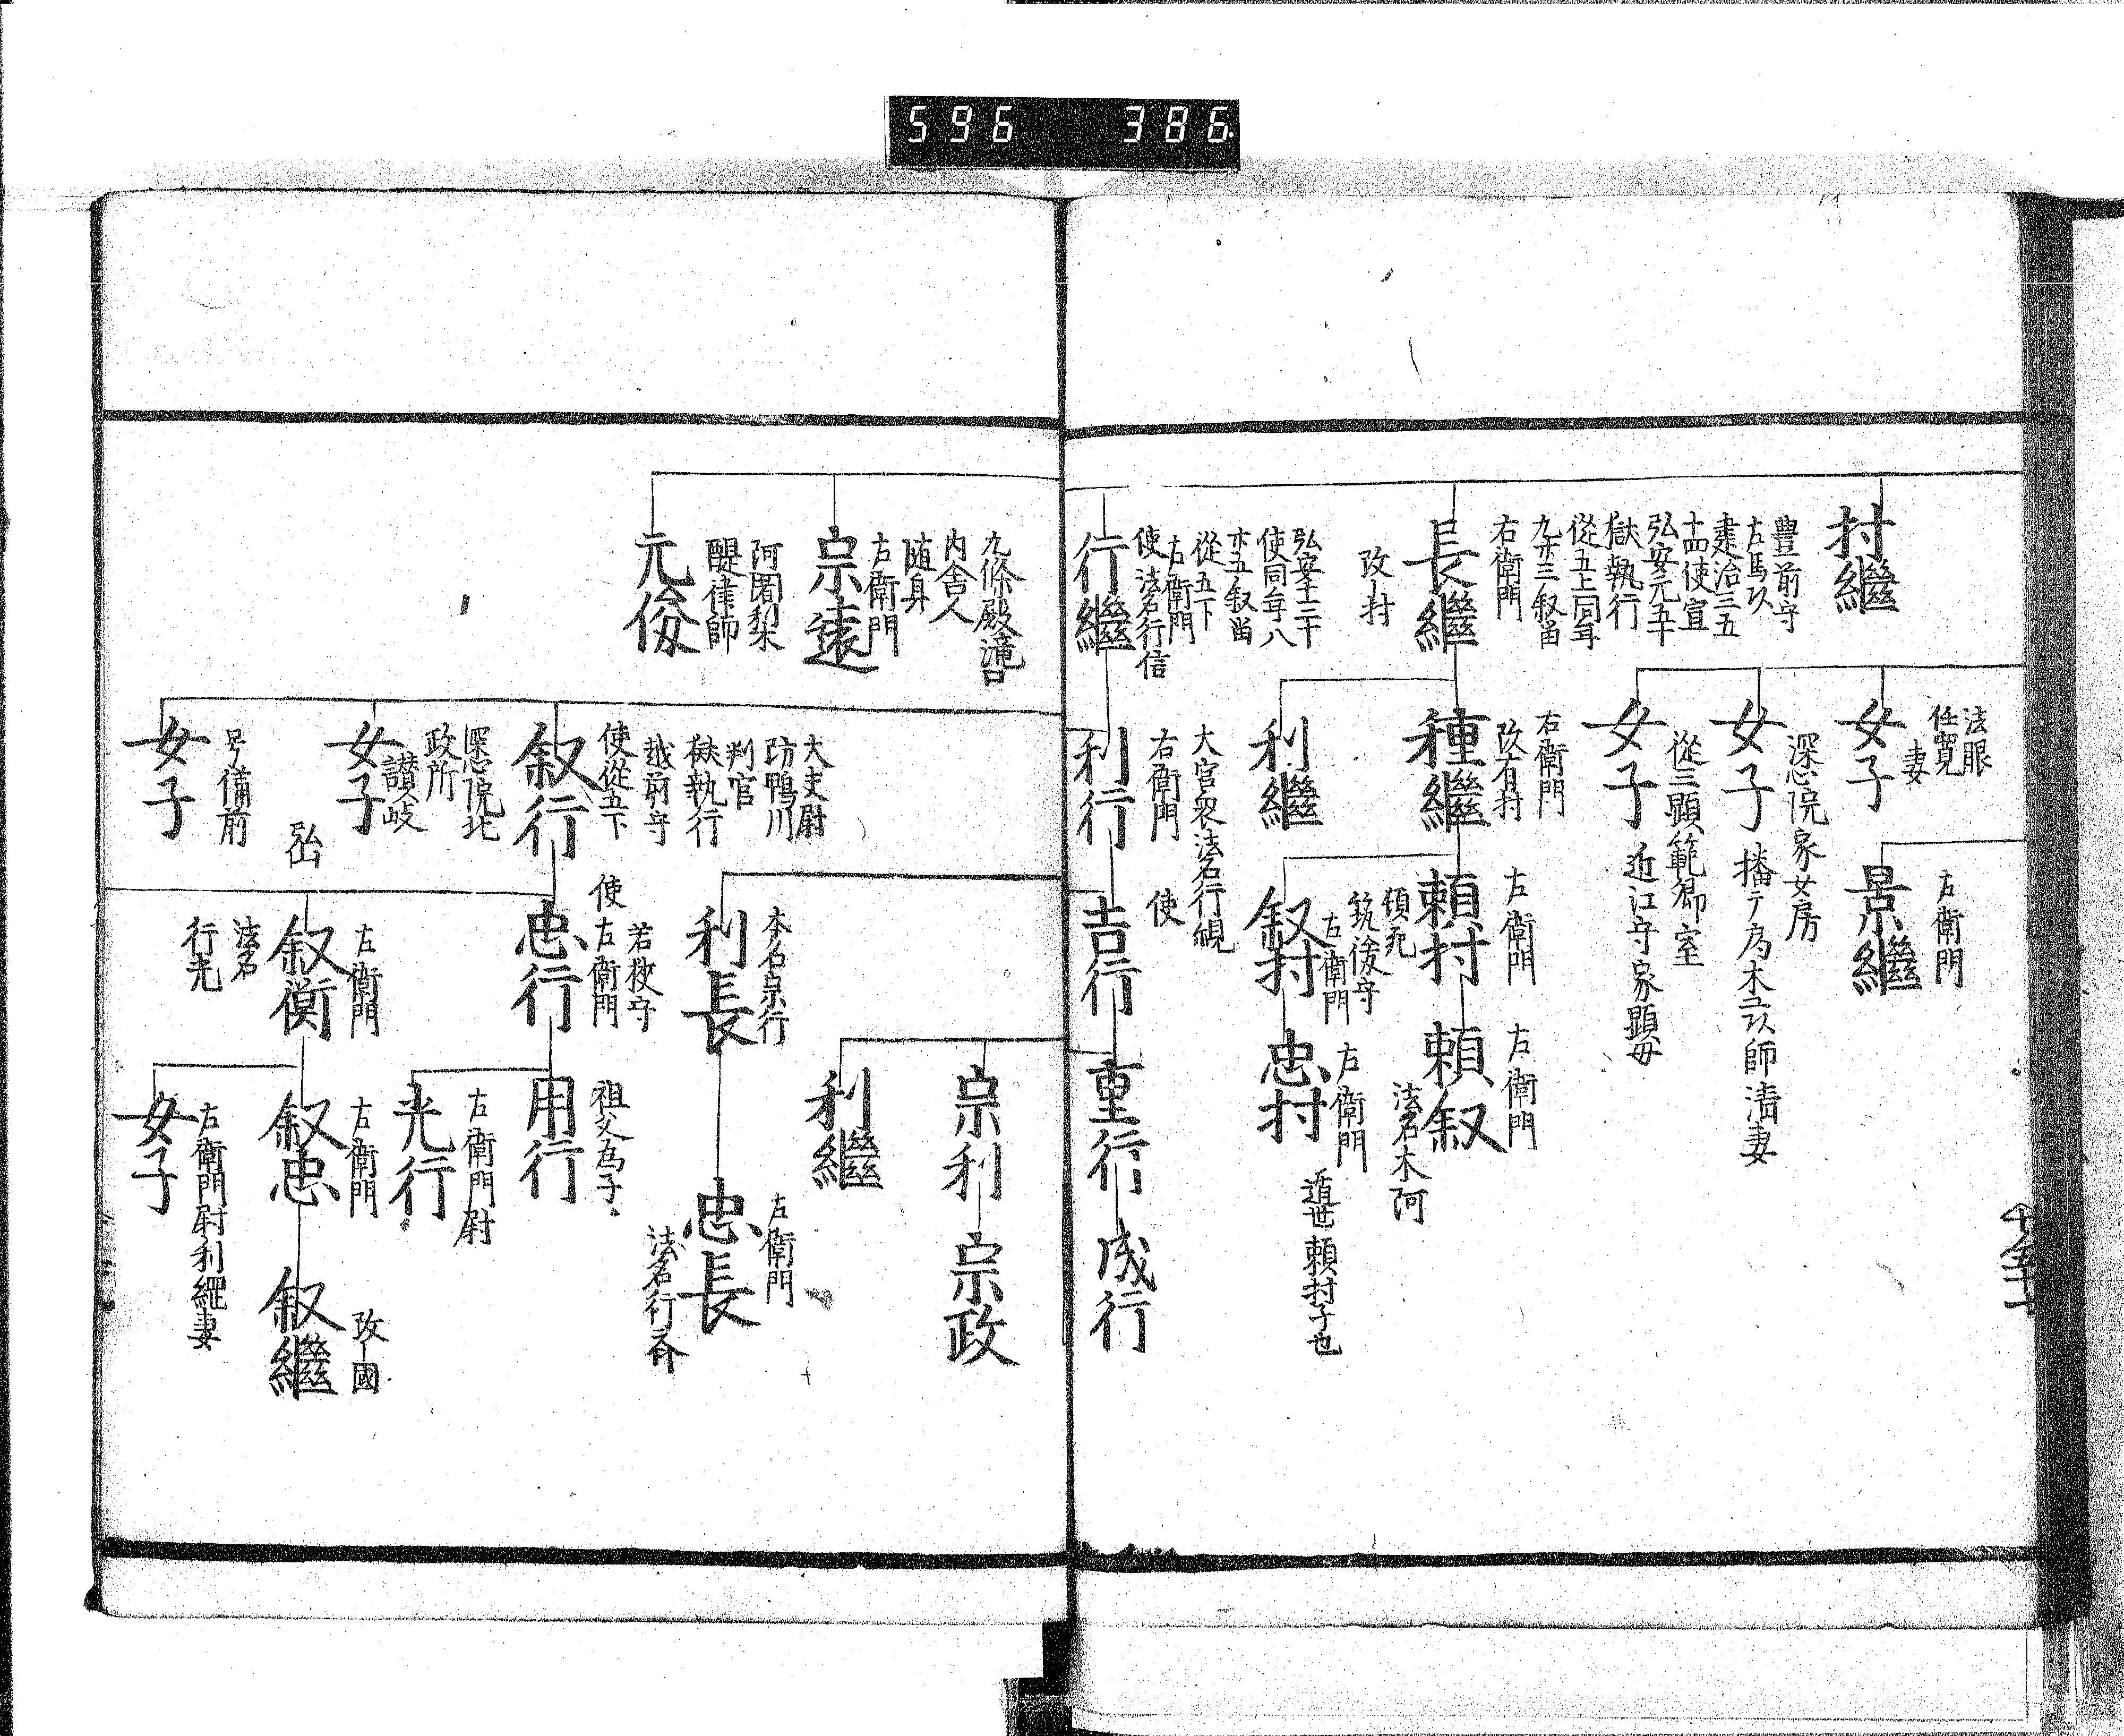 596 386
村繼
豊前守
左馬以
建治三五
十四使宣
弘安元五十
獄執行
從五上同年
九十三叙留
右衛門
長繼
改｜村
弘安十二十
使同年八
十五叙留
從五下
左衛門
使法名行信
行繼
法眼
任寛
妻
女子
深心院家女房
女子
播テ為木工以師淸妻
從三顕範卿室
女子
近江守家顕母
右衛門
改有村
種繼
利繼
大宮衆法名行観
右衛門
利行
左衛門
景繼
左衛門
頼村
頓死
筑後守
左衛門
叙村
使
吉行
左衛門
頼叙
法名木阿
左衛門
忠村
遁世頼村子也
重行
成行
九條殿滝口
内舎人
随身
左衛門
宗遠
阿闍梨
醍律師
元俊
大夫尉
防鴨川
判官
獄執行
越前守
使從五下
叙行
深心院北
政所
讃岐
女子
号備前
女子
本名宗行
利長
若狭守
左衛門
使
忠行
左衛門
叙衡
法名
行光
宗利
宗政
利繼
左衛門
忠長
祖父為子
用行
右衛門尉
光行
左衛門
叙忠
左衛門尉利繼妻
女子
改｜國
叙繼